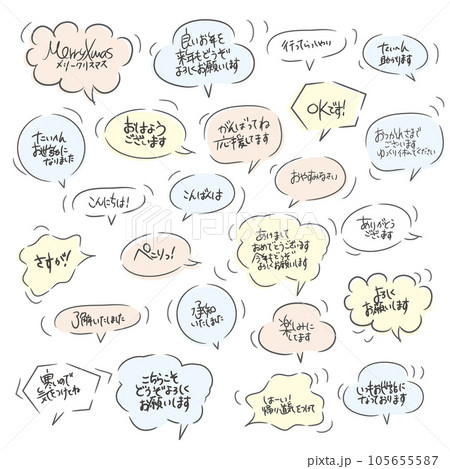 Merry Xmas
メリークリスマス
良いお年を
来年もどうぞ
よろしくお願いします
行ってらっしゃい
たいへん
助かります
たいへん
お世話に
なりました
おはよう
ございます
がんばってね
応援してます
OKです!
おつかれさまで
ございます
ゆっくり休んでください
こんにちは!
こんばんは
おやすみなさい
さすが!
ペこりっ!
あけまして
おめでとうございます
今年もどうぞ
よろしくお願いします
ありがとう
ございます
了解いたしました
承知
いたしました
楽しみに
してます
よろしく
お願いします
寒いので
気をつけてね
こちらこそ
どうぞよろしく
お願いします
はーい!
帰り道気をつけて
いつもお世話に
なっております
PIXTA
pixta.jp - 105655587